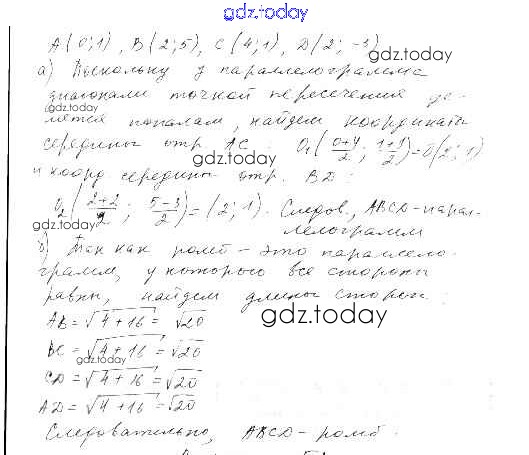 gdz.today
A(0;1), B(2;5), C(4;1), D(2;-3)
gdz.today
а) Поскольку у параллелограмма
диагонали точкой пересечения де-
gdz.today
лятся пополам, найдем координаты
середины отр. AC: O₁(0+4/2; 1+1/2)=O(2;1)
gdz.today
и коорд середины отр. BD:
O₂(2+2/2; 5-3/2)=(2;1). Следов., ABCD-парал-
gdz.today
лелограмм
б) Так как ромб - это параллело-
грамм, у которого все стороны
равны, найдем длины сторон:
AB=√4+16=√20
gdz.today
BC=√4+16=√20
gdz.today
CD=√4+16=√20
AD=√4+16=√20
Следовательно, ABCD-ромб.